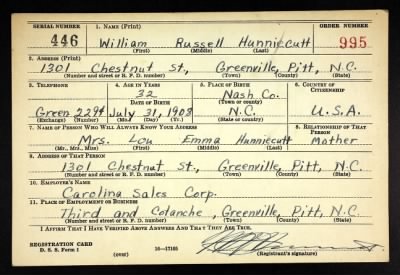 SERIAL NUMBER 1. NAME (Print) ORDER NUMBER
446 William Russell Hunniecutt 995
(First) (Middle) (Last)
2. ADDRESS (Print)
1301 Chestnut St., Greenville, Pitt, N.C.
(Number and street or R. F. D. number) (Town) (County) (State)
3. TELEPHONE 4. AGE IN YEARS 5. PLACE OF BIRTH 6. COUNTRY OF CITIZENSHIP
32 Nash Co.
DATE OF BIRTH (Town or county)
Green 2294 July 31, 1908 N.C. U.S.A.
(Exchange) (Number) (Mo.) (Day) (Yr.) (State or country)
7. NAME OF PERSON WHO WILL ALWAYS KNOW YOUR ADDRESS 8. RELATIONSHIP OF THAT PERSON
Mrs. Lou Emma Hunniecutt Mother
(Mr., Mrs., Miss) (First) (Middle) (Last)
9. ADDRESS OF THAT PERSON
1301 Chestnut St., Greenville, Pitt, N.C.
(Number and street or R. F. D. number) (Town) (County) (State)
10. EMPLOYER'S NAME
Carolina Sales Corp.
11. PLACE OF EMPLOYMENT OR BUSINESS
Third and Cotanche, Greenville, Pitt, N.C.
(Number and street or R. F. D. number) (Town) (County) (State)
I AFFIRM THAT I HAVE VERIFIED ABOVE ANSWERS AND THAT THEY ARE TRUE.
REGISTRATION CARD
D. S. S. Form 1 (over) 16—17105 (Registrant's signature)